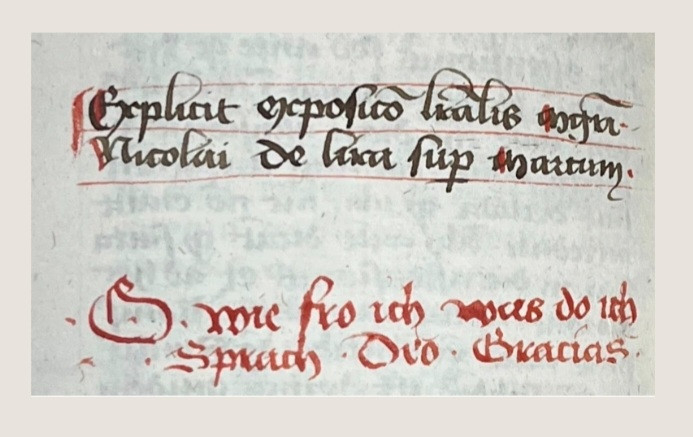 Explicit exposicō līralis mgrā.
Nicolai de lira sup martum.
O. wie fro ich was do ich
Sprach. Deo. Gracias.